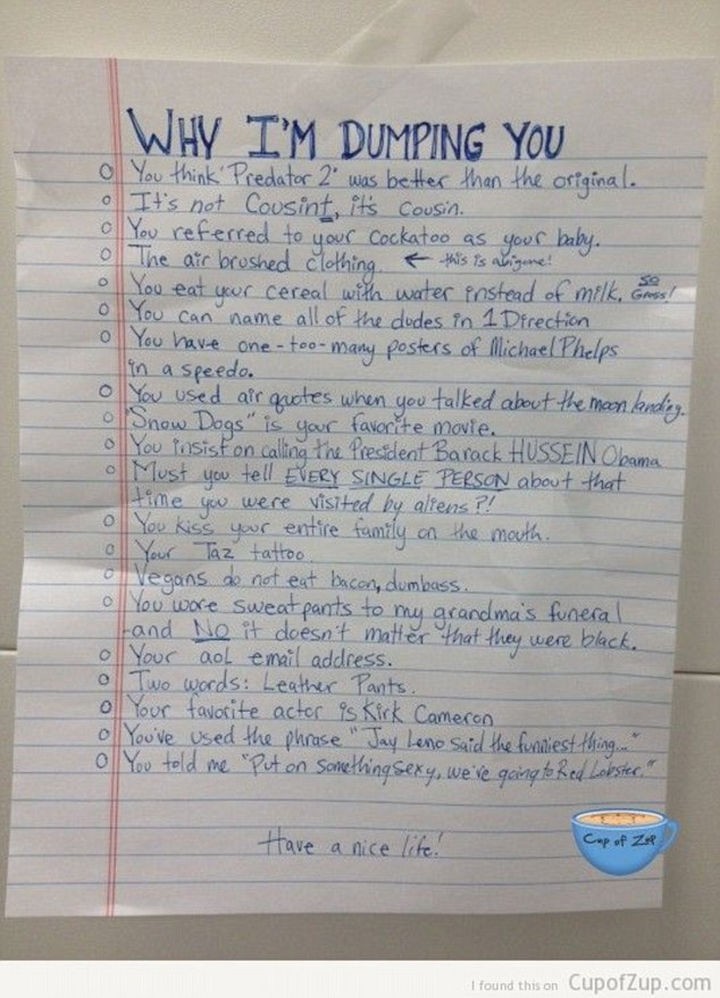 WHY I'M DUMPING YOU
You think 'Predator 2' was better than the original.
It's not Cousint, it's cousin.
You referred to your cockatoo as your baby.
The air brushed clothing. ← this is a biggone!
You eat your cereal with water instead of milk. SO Gross!
You can name all of the dudes in 1 Direction
You have one-too-many posters of Michael Phelps
in a speedo.
You used air quotes when you talked about the moon landing.
"Snow Dogs" is your favorite movie.
You insist on calling the President Barack HUSSEIN Obama
Must you tell EVERY SINGLE PERSON about that
time you were visited by aliens?!
You kiss your entire family on the mouth.
Your Taz tattoo.
Vegans do not eat bacon, dumbass.
You wore sweatpants to my grandma's funeral
-and NO it doesn't matter that they were black.
Your aol email address.
Two words: Leather Pants.
Your favorite actor is Kirk Cameron
You've used the phrase "Jay Leno said the funniest thing..."
You told me "Put on something sexy, we're going to Red Lobster."
Have a nice life!
Cup of Zup
I found this on CupofZup.com